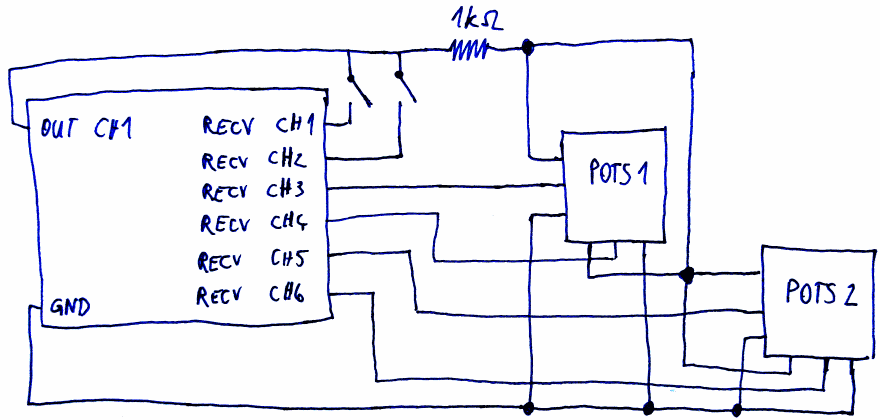 1kΩ
OUT CH1
RECV CH1
RECV CH2
RECV CH3
RECV CH4
RECV CH5
RECV CH6
GND
POTS1
POTS 2